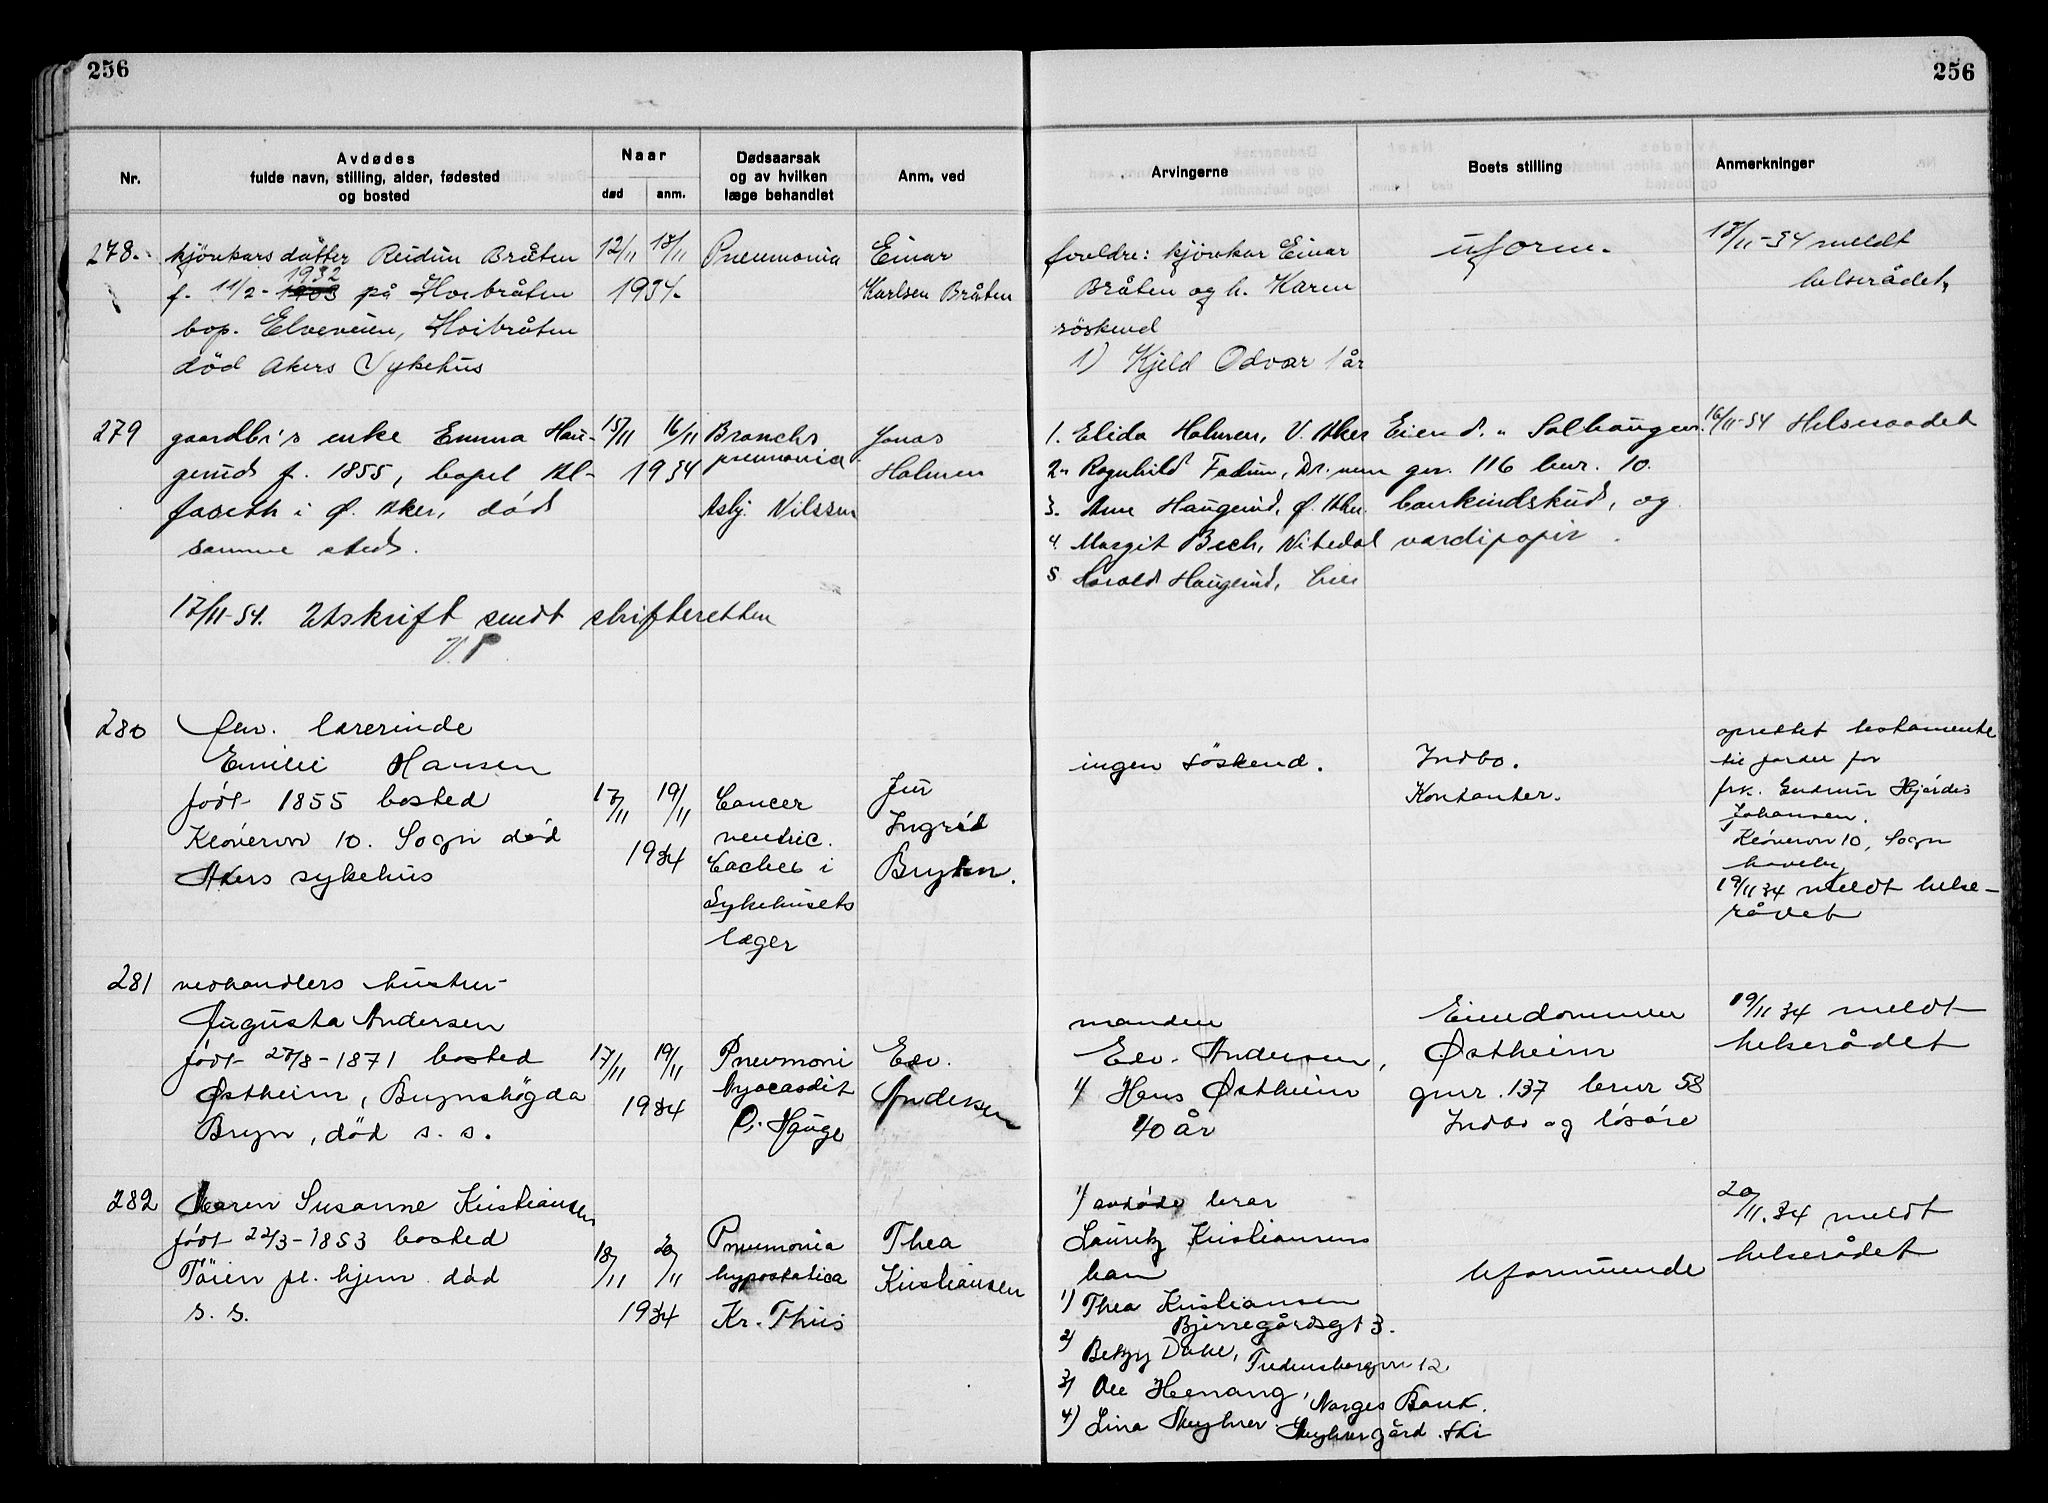 256
256
Nr.
Avdødes
fulde navn, stilling, alder, fødested
og bosted
Naar
død
anm.
Dødsaarsak
og av hvilken
læge behandlet
Anm. ved
Arvingerne
Boets stilling
Anmerkninger
278.
kjörekars datter Reidun Bråten
f. 11/2 - 1932 på Høibråten
bop. Elveveien, Høibråten
död Akers Sykehus
12/11 18/11
1934.
Pneumonia
Einar
Karlsen Bråten
foreldre: kjörekar Einar
Bråten og h. Karen
söskend
1) Kjeld Odvar 1 år
uform.
18/11-34 meldt
helserådet,
279
gaardbr's enke Emma Hau-
gerud f. 1855, bopel Al-
faseth i Ø. Aker, död
samme sted.
17/11-34. Utskrift sendt skifteretten
V.P
15/11 16/11
1934
Broncho
pneumonia
Asbj. Nilssen
Jonas
Holmen
1. Elida Holmen, V. Aker
2. Ragnhild Fadum, Drammen
3. Arne Haugerud, Ø. Aker
4. Margit Bech, Nitedal
5. Harald Haugerud, her
Eiend. "Solhaugen"
gnr. 116 bnr. 10.
bankindskud, og
værdipapir.
16/11-34 Helseraadet
280
fhv. lærerinde
Emilie Hansen
født 1855 bosted
Kløvervn 10. Sogn død
Akers sykehus
17/11 19/11
1934
Cancer
ventric.
i
Sykehusets
læger
Ingrid
Bryhn.
ingen søskend.
Indbo.
Kontanter.
oprettet testamente
til fordel for
frk. Gudrun Hjørdis
Johansen.
Kløvervn 10, Sogn
haveby
19/11 34 meldt helse-
rådet
281
vedhandlers hustru
Augusta Andersen
født 27/8-1871 bosted
Østheim, Brynshøgda
Bryn, død s. s.
17/11 19/11
1934
Pneumoni
Myocardit
P. Hauge
Edv.
Andersen
manden
Edv. Andersen,
1/ Hans Østheim
40 år
Eiendommen
Østheim
gnr. 137 bnr 58
Indbo og løsøre
19/11 34 meldt
helserådet
282
Karen Susanne Kristiansen
født 22/3-1853 bosted
Töien pl. hjem død
s. s.
18/11 20/11
1934
Pneumonia
hypostatica
Kr. Thiis
Thea
Kristiansen
1/ avdøde bror
Lauritz Kristiansens
barn
1) Thea Kristiansen
Bjerregårdsgt 3.
2) Betzy Dahl, Fredensborgvn 12
3) Ole Heenang, Norges Bank.
4) Lina Skuhrer. Skuhrergård. Ski
Uformuende
20/11.34 meldt
helserådet